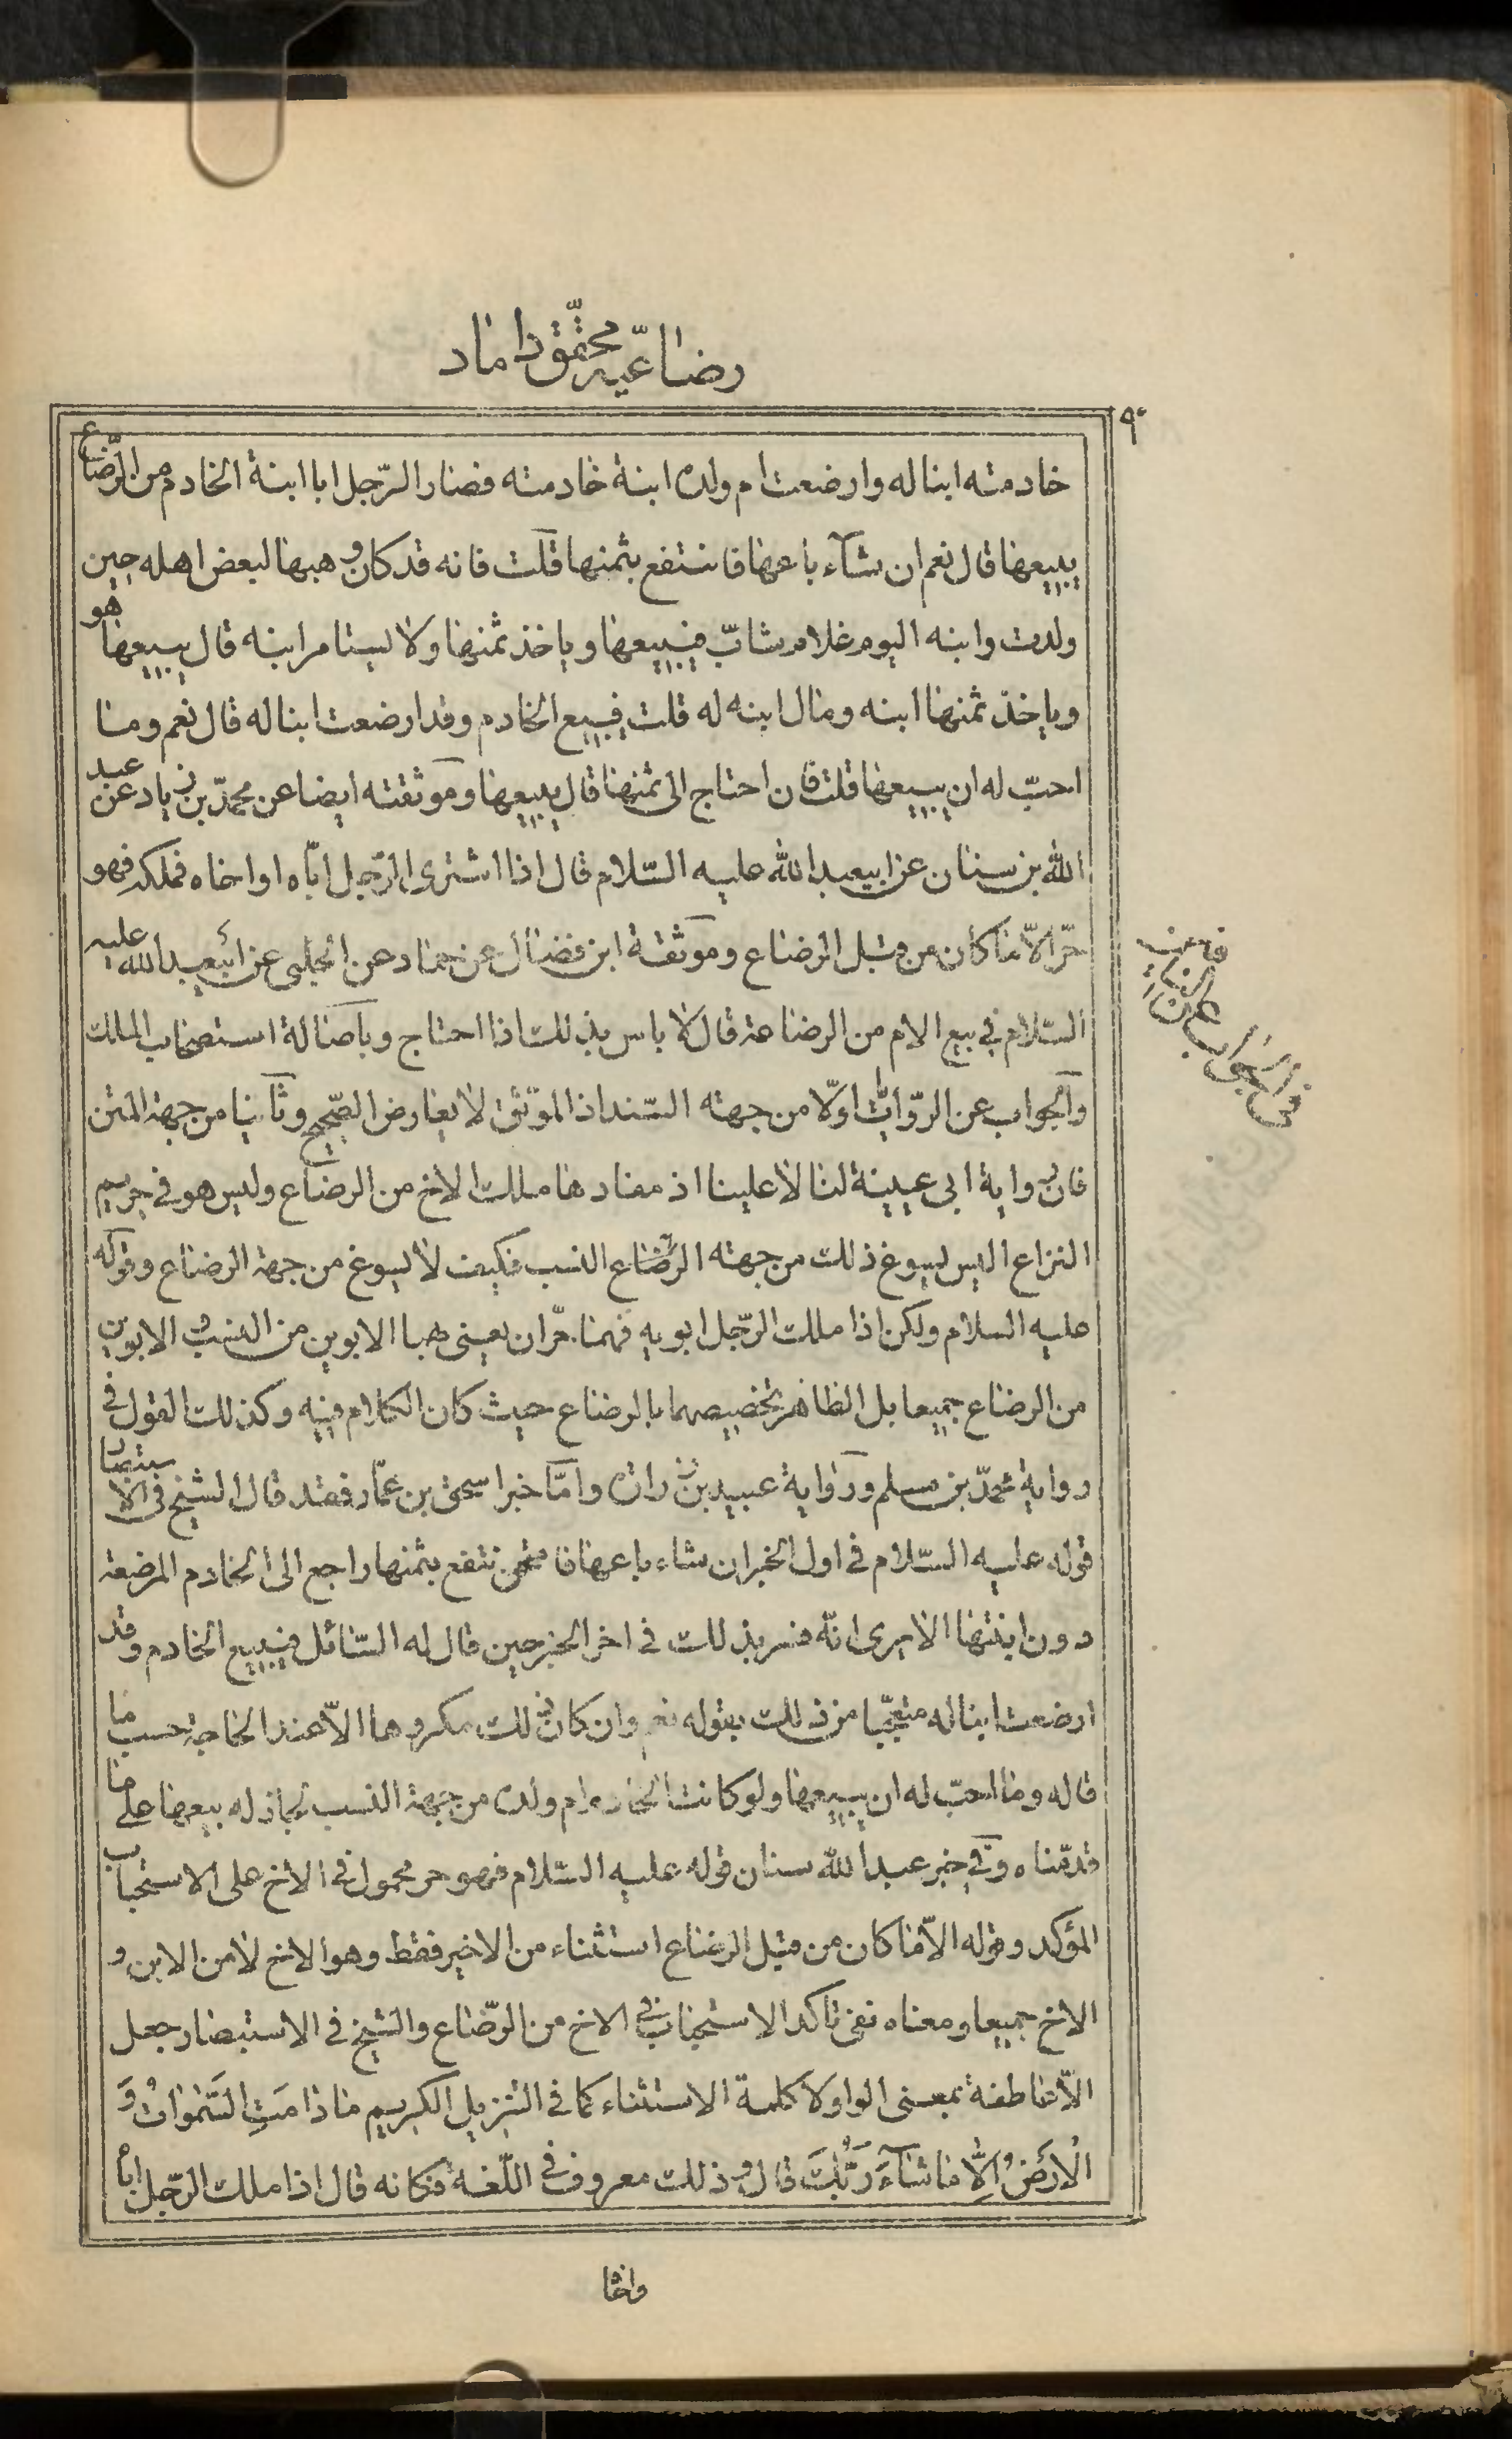 رضاعيّه محقّق داماد
٩٠
خادمته ابنا له وارضعت ام ولده ابنة خادمته فصار الرّجل ابا ابنة الخادم من الرّضاع
يبيعها قال نعم ان شآء باعها فانتفع بثمنها قلت فانه قد كان وهبها لبعض اهله حين
ولدت وابنه اليوم غلام شابّ فيبيعها وياخذ ثمنها ولا يستامر ابنه قال يبيعها هو
وياخذ ثمنها ابنه ومال ابنه له قلت فيبيع الخادم وقد ارضعت ابنا له قال نعم وما
احبّ له ان يبيعها قلت فان احتاج الى ثمنها قال يبيعها وموثقته ايضا عن محمّد بن زياد عن عبد
الله بن سنان عن ابيعبد الله عليه السّلام قال اذا اشترى الرّجل اباه او اخاه فملكه فهو
حرّ الاّ ما كان من قبل الرضاع وموثّقة ابن فضال عن حماد عن الحلبى عن ابيعبد الله عليه
السّلام في بيع الام من الرضاعة قال لا باس بذلك اذا احتاج وباصالة استصحاب الملك
والجواب عن الرّوايات اولّا من جهته السّند اذ الموثّق لا يعارض الصّحيح وثانيا من جهة المتن
فان رواية ابى عيينة لنا لا علينا اذ مفادها ملك الاخ من الرضاع وليس هو فى حريم
النزاع اليس يسوغ ذلك من جهته النسب فكيف لا يسوغ من جهة الرضاع وقوله
عليه السلام ولكن اذا ملك الرّجل ابويه فهما حرّان يعنى بهما الابوين من النسب و الابوين
من الرضاع جميعا بل الظاهر تخصيصهما بالرضاع حيث كان الكلام فيه وكذلك القول فى
رواية محمّد بن مسلم ورواية عبيد بن زرارة وامّا خبر اسحق بن عمّار فقد قال الشيخ فى الاستبصار
قوله عليه السّلام فى اول الخبر ان شاء باعها فانتفع بثمنها راجع الى الخادم المرضعة
دون ابنتها الا يرى انّه فسر بذلك فى اخر الخبر حين قال له السّائل فيبيع الخادم وقد
ارضعت ابنا له متعجّبا من ذلك بقوله نعم وان كان ذلك مكروها الاّ عند الحاجة حسب ما
قاله وما احبّ له ان يبيعها ولو كانت الخادم ام ولده من جهة النسب لجاز له بيعها على ما
قدمّناه وفى خبر عبد الله سنان قوله عليه السّلام فهو حر محمول فى الاخ على الاستحباب
المؤكد وقوله الاّ ما كان من قبل الرضاع استثناء من الاخير فقط وهو الاخ لا من الابن و
الاخ جميعا ومعناه نفى تاكد الاستحباب فى الاخ من الرّضاع والشيخ فى الاستبصار جعل
الاّ عاطفة بمعنى الواو لا كلمة الاستثناء كما فى التنزيل الكريم ما دامَتِ السَّمٰواتُ وَ
الْارَضُ اِلّا ما شآءَ رَبُّكَ قال وذلك معروف فى اللّغة فكانه قال اذا ملك الرّجل اباه
واخاه
فى الجواب عن الروايات